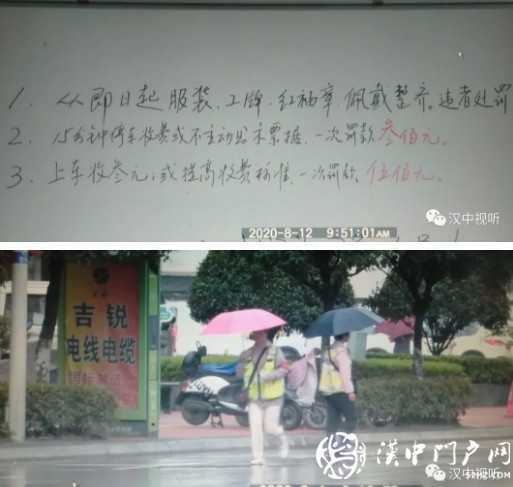 1. 从即日起服装、工牌、红袖章、佩戴整齐。违者处罚
2. 15分钟停车收费或不主动出示票据、一次罚款叁佰元。
3. 上车收叁元、或提高收费标准、一次罚款伍佰元。
汉中视听
2020-8-12 9:51:01AM
吉锐
电线电缆
汉中门户网
汉中视听